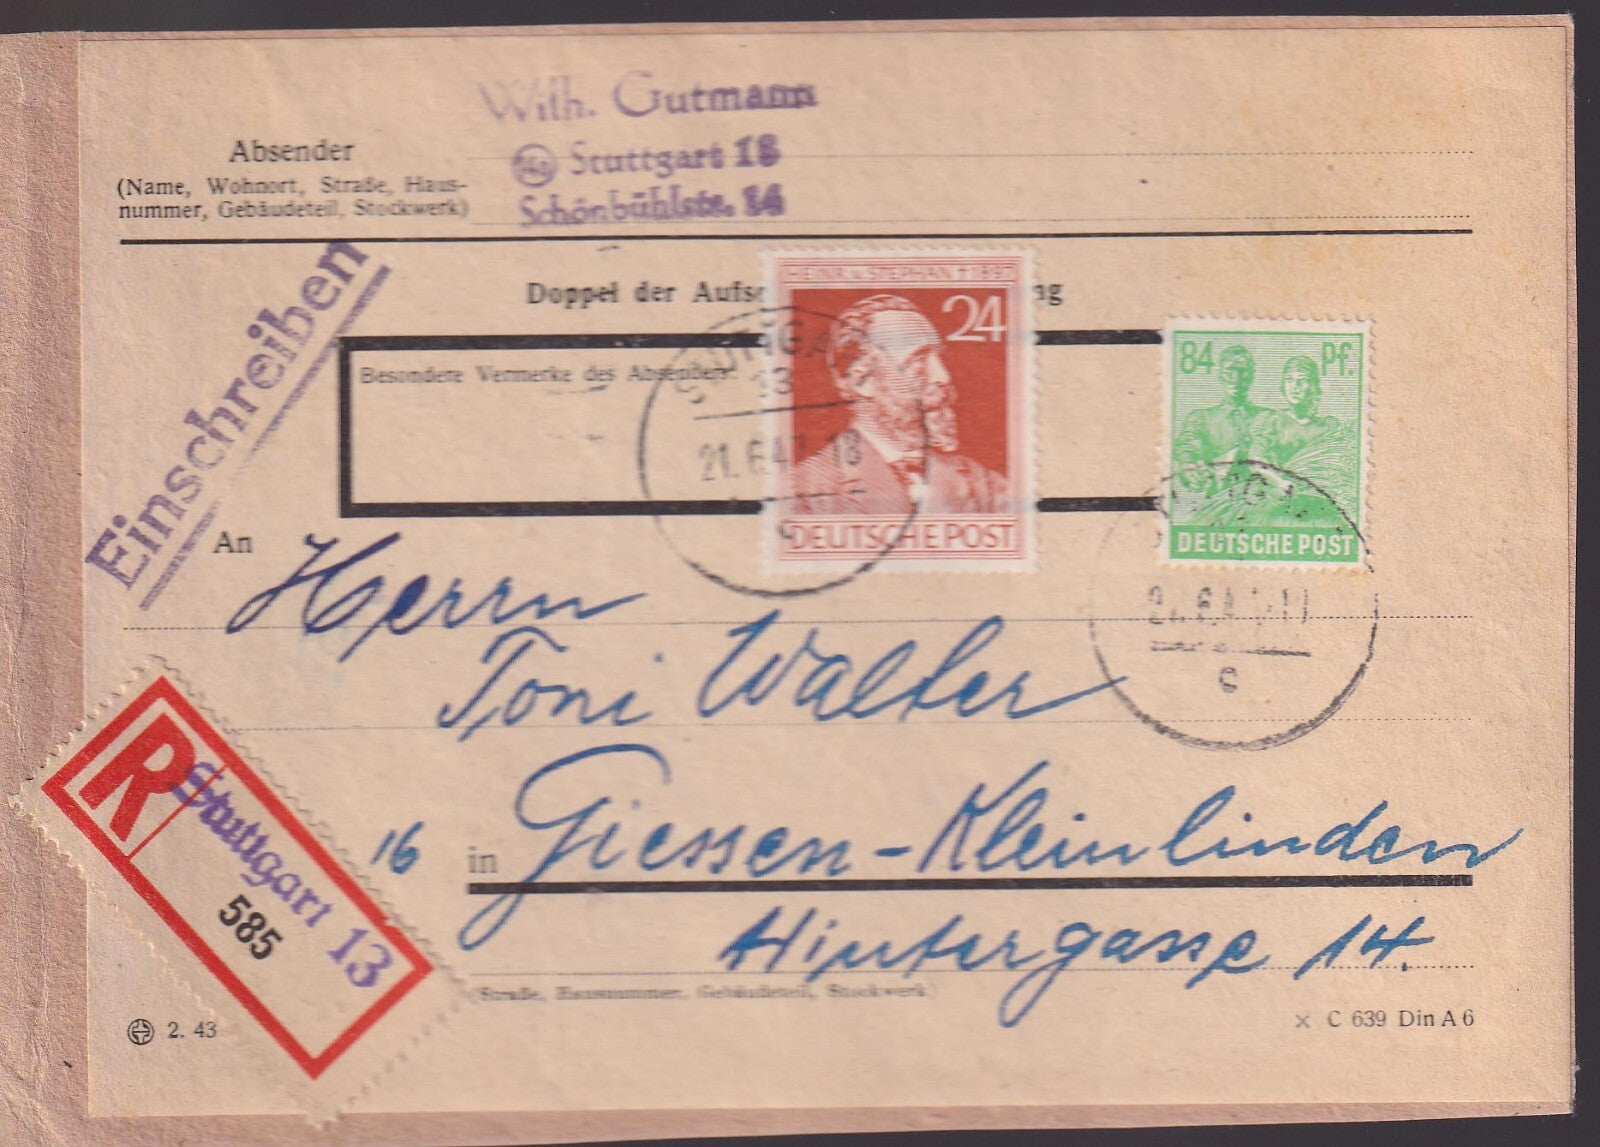 Wilh. Gutmann
Absender
(Name, Wohnort, Straße, Haus-
nummer, Gebäudeteil, Stockwerk)
Stuttgart 18
Schönbühlstr. 14
Einschreiben
Doppel der Aufsc ng
Besondere Vermerke des Absenders:
HEINR. v. STEPHAN † 1897
24
DEUTSCHE POST
84 Pf.
DEUTSCHE POST
STUTTGART
13
21.6.47 18
c
21.6.47
c
An Herrn
Toni Walter
16 in Giessen-Kleinlinden
Hintergasse 14.
(Straße, Hausnummer, Gebäudeteil, Stockwerk)
R Stuttgart 13
585
2. 43
× C 639 Din A 6